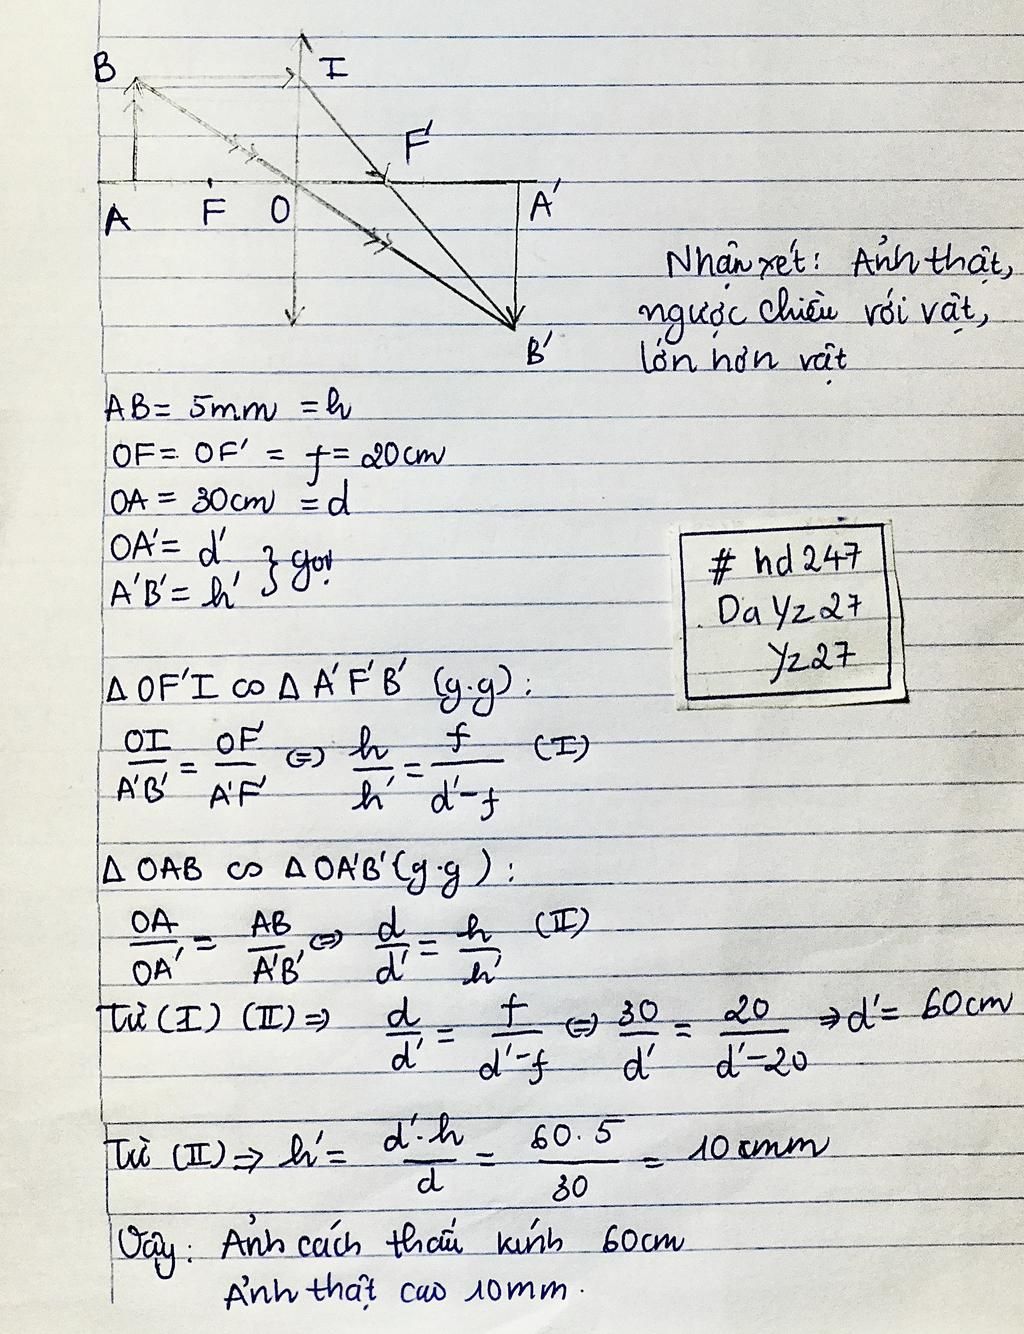 B
I
F'
A
F
O
A'
B'
Nhận xét: Ảnh thật,
ngược chiều với vật,
lớn hơn vật
AB = 5mm = h
OF = OF' = f = 20cm
OA = 30cm = d
OA' = d'
A'B' = h' } gọi
# hd247
Da Yz27
Yz27
Δ OF'I ∽ Δ A'F'B' (g.g) :
OI/A'B' = OF'/A'F' ⇔ h/h' = f/(d'-f) (I)
Δ OAB ∽ Δ OA'B' (g.g) :
OA/OA' = AB/A'B' ⇔ d/d' = h/h' (II)
Từ (I) (II) ⇒ d/d' = f/(d'-f) ⇔ 30/d' = 20/(d'-20) ⇒ d' = 60cm
Từ (II) ⇒ h' = d'.h/d = 60.5/30 = 10 mm
Vậy : Ảnh cách thấu kính 60cm
Ảnh thật cao 10mm.